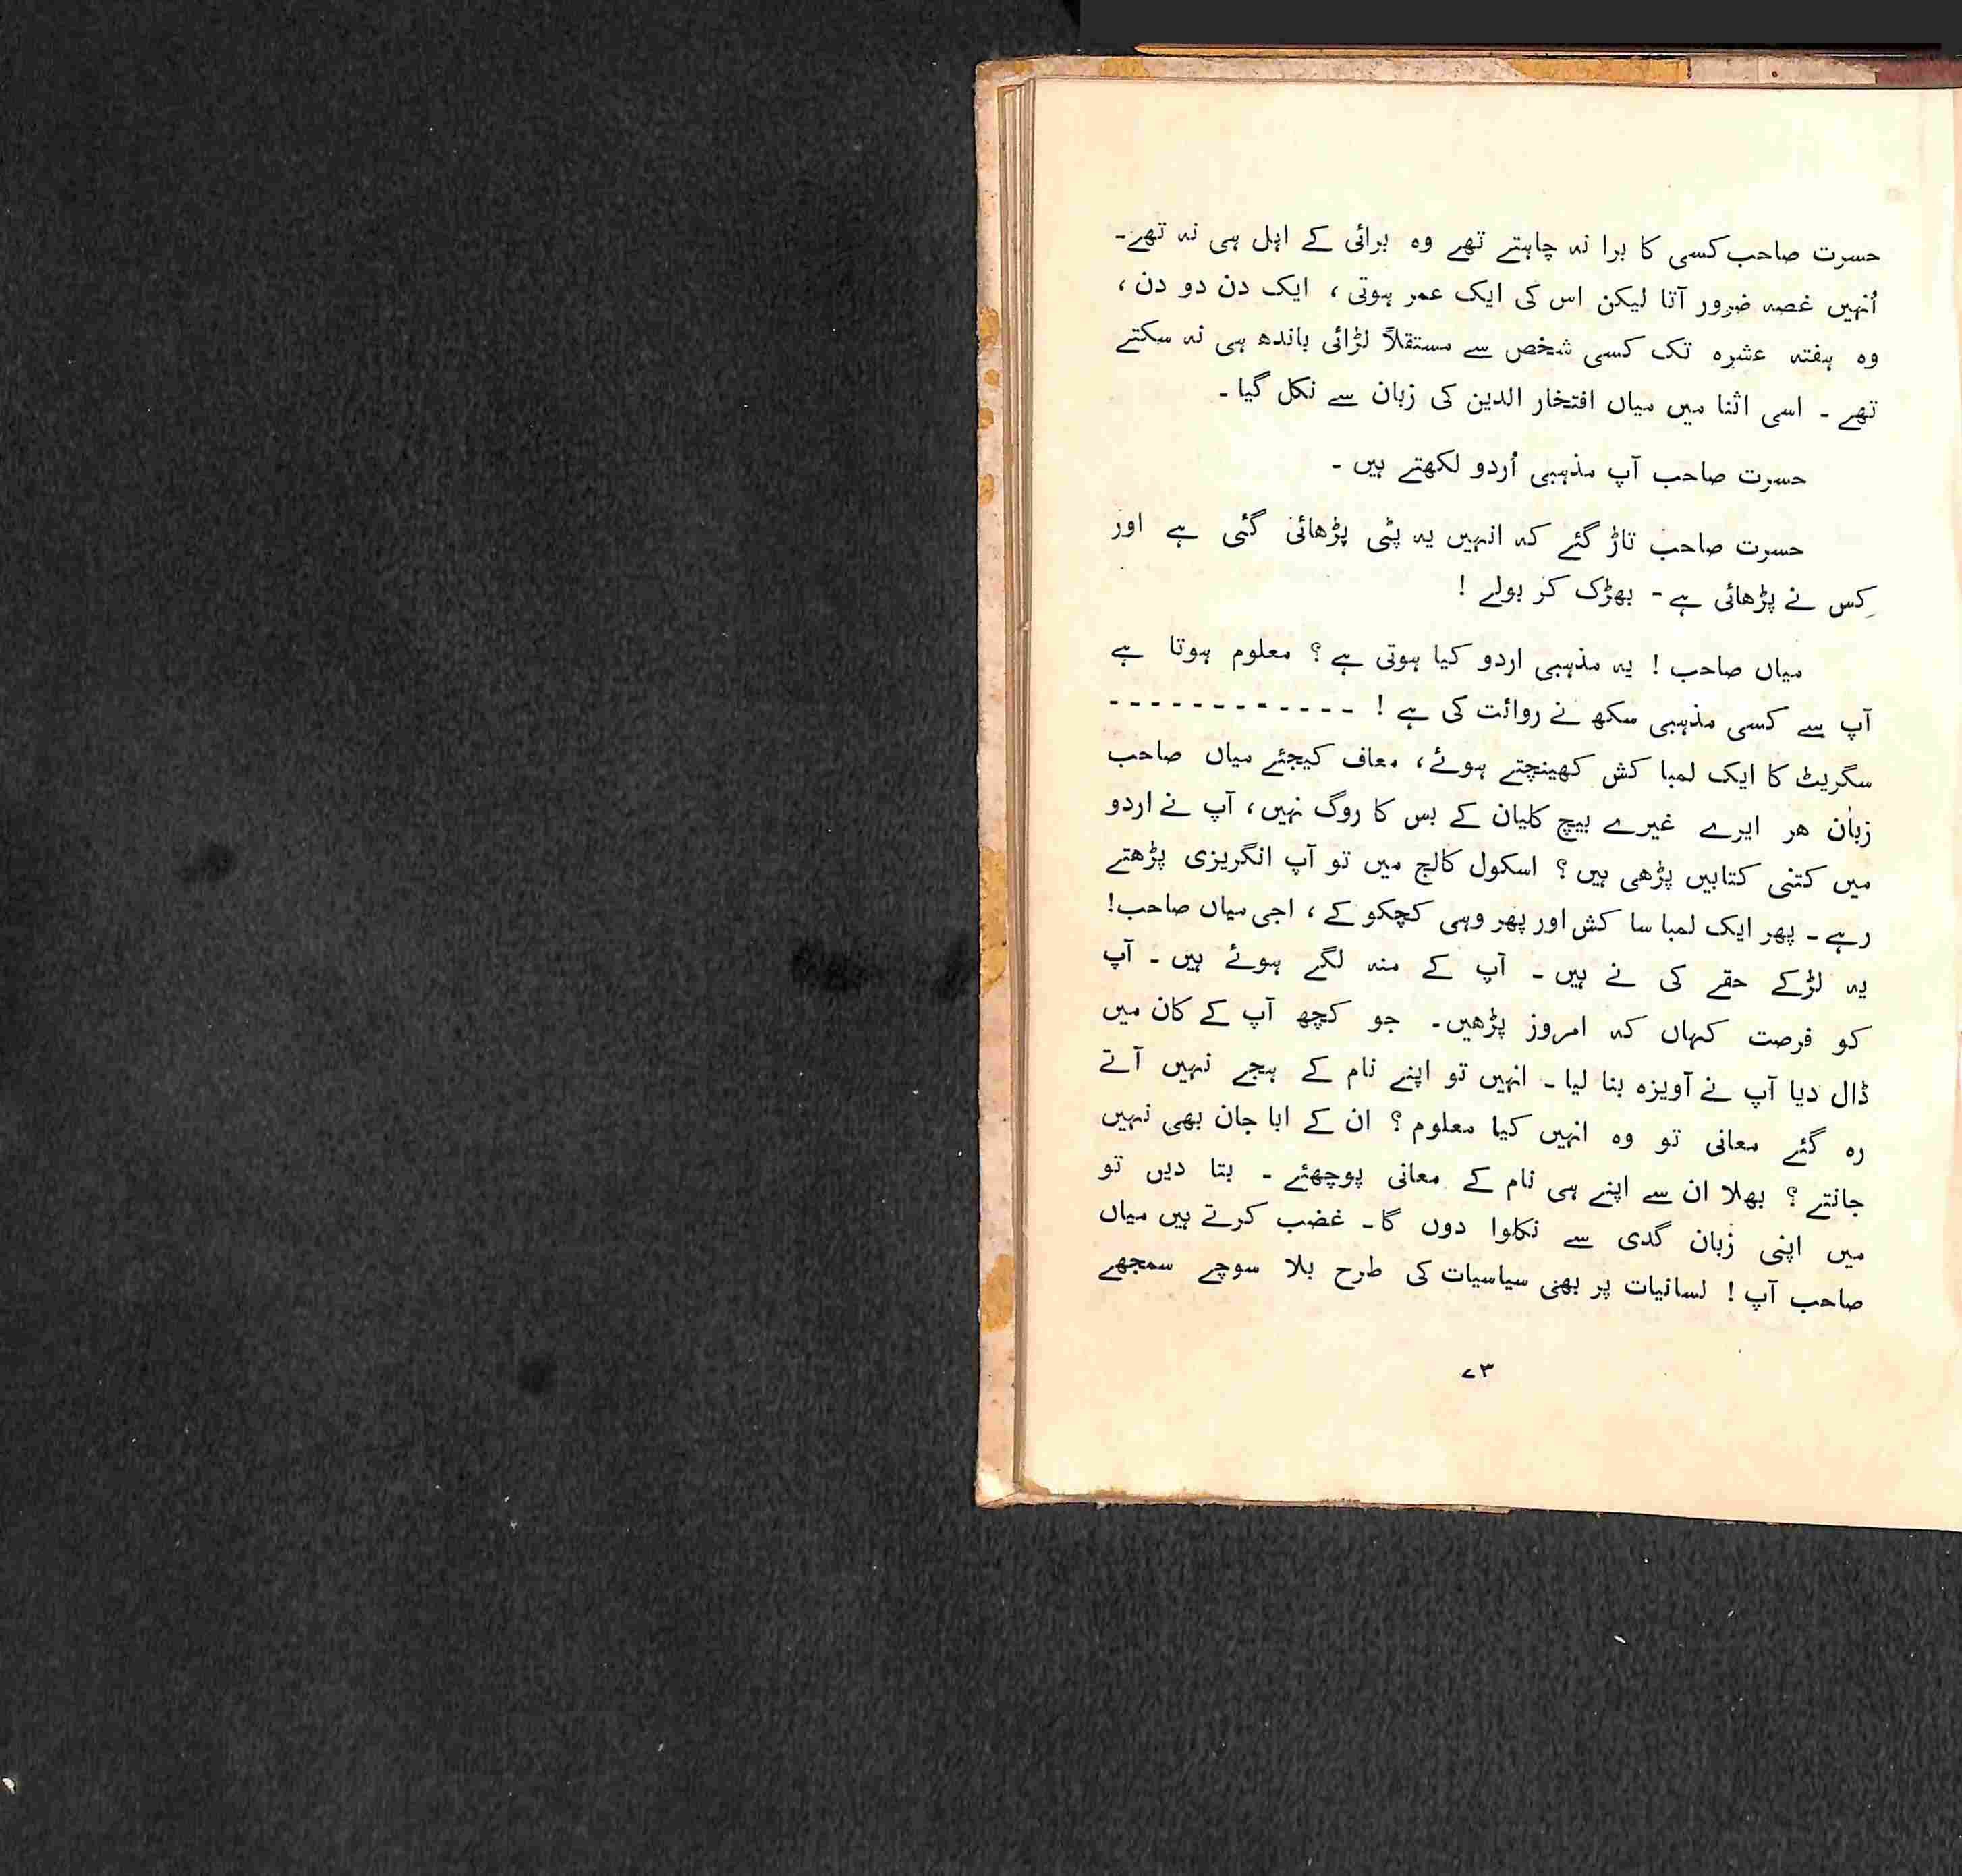 حسرت صاحب کسی کا برا نہ چاہتے تھے وہ برائی کے اہل ہی نہ تھے۔
اُنہیں غصہ ضرور آتا لیکن اس کی ایک عمر ہوتی، ایک دن دو دن،
وہ ہفتہ عشرہ تک کسی شخص سے مستقلاً لڑائی باندھ ہی نہ سکتے
تھے ۔ اسی اثنا میں میاں افتخار الدین کی زبان سے نکل گیا ۔
حسرت صاحب آپ مذہبی اُردو لکھتے ہیں ۔
حسرت صاحب تاڑ گئے کہ انہیں یہ پٹی پڑھائی گئی ہے اور
کِس نے پڑھائی ہے - بھڑک کر بولے !
میاں صاحب ! یہ مذہبی اردو کیا ہوتی ہے ؟ معلوم ہوتا ہے
آپ سے کسی مذہبی سکھ نے روائت کی ہے ! - - - - - - - - - - - -
سگریٹ کا ایک لمبا کش کھینچتے ہوئے، معاف کیجئے میاں صاحب
زبان ھر ایرے غیرے بیچ کلیان کے بس کا روگ نہیں، آپ نے اردو
میں کتنی کتابیں پڑھی ہیں ؟ اسکول کالج میں تو آپ انگریزی پڑھتے
رہے ۔ پھر ایک لمبا سا کش اور پھر وہی کچکو کے ، اجی میاں صاحب!
یہ لڑکے حقے کی نے ہیں ۔ آپ کے منہ لگے ہوئے ہیں ۔ آپ
کو فرصت کہاں کہ امروز پڑھیں۔ جو کچھ آپ کے کان میں
ڈال دیا آپ نے آویزہ بنا لیا ۔ انہیں تو اپنے نام کے ہجے نہیں آتے
رہ گئے معانی تو وہ انہیں کیا معلوم ؟ ان کے ابا جان بھی نہیں
جانتے ؟ بھلا ان سے اپنے ہی نام کے معانی پوچھئے ۔ بتا دیں تو
میں اپنی زبان گدی سے نکلوا دوں گا۔ غضب کرتے ہیں میاں
صاحب آپ ! لسانیات پر بھی سیاسیات کی طرح بلا سوچے سمجھے
۷۳